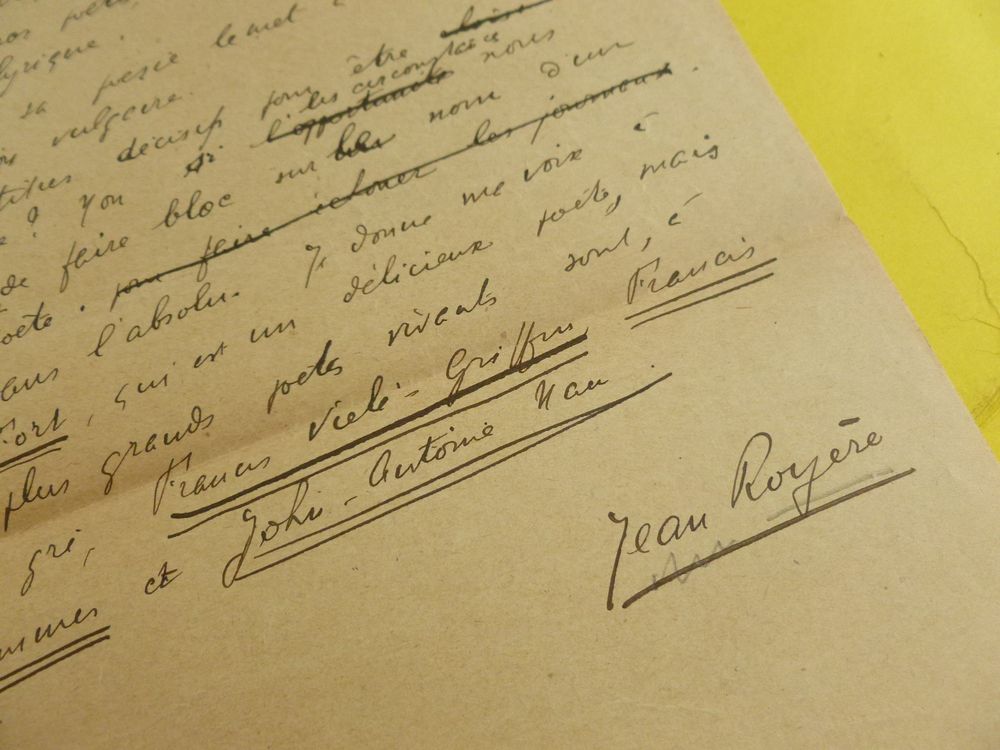 nos poètes,
lyrique.
sa poésie le met à
vulgaire.
décisif pour être
les circonstances
? Non si l'opportunité nous
de faire bloc sur le nom d'un
poète. pour faire échouer les journaux.
l'absolu. Je donne ma voix à
Fort, qui est un délicieux poète, mais
plus grands poètes vivants sont, à
gré, Francis Vielé-Griffin Francis
Jammes et John-Antoine Nau.
Jean Royère